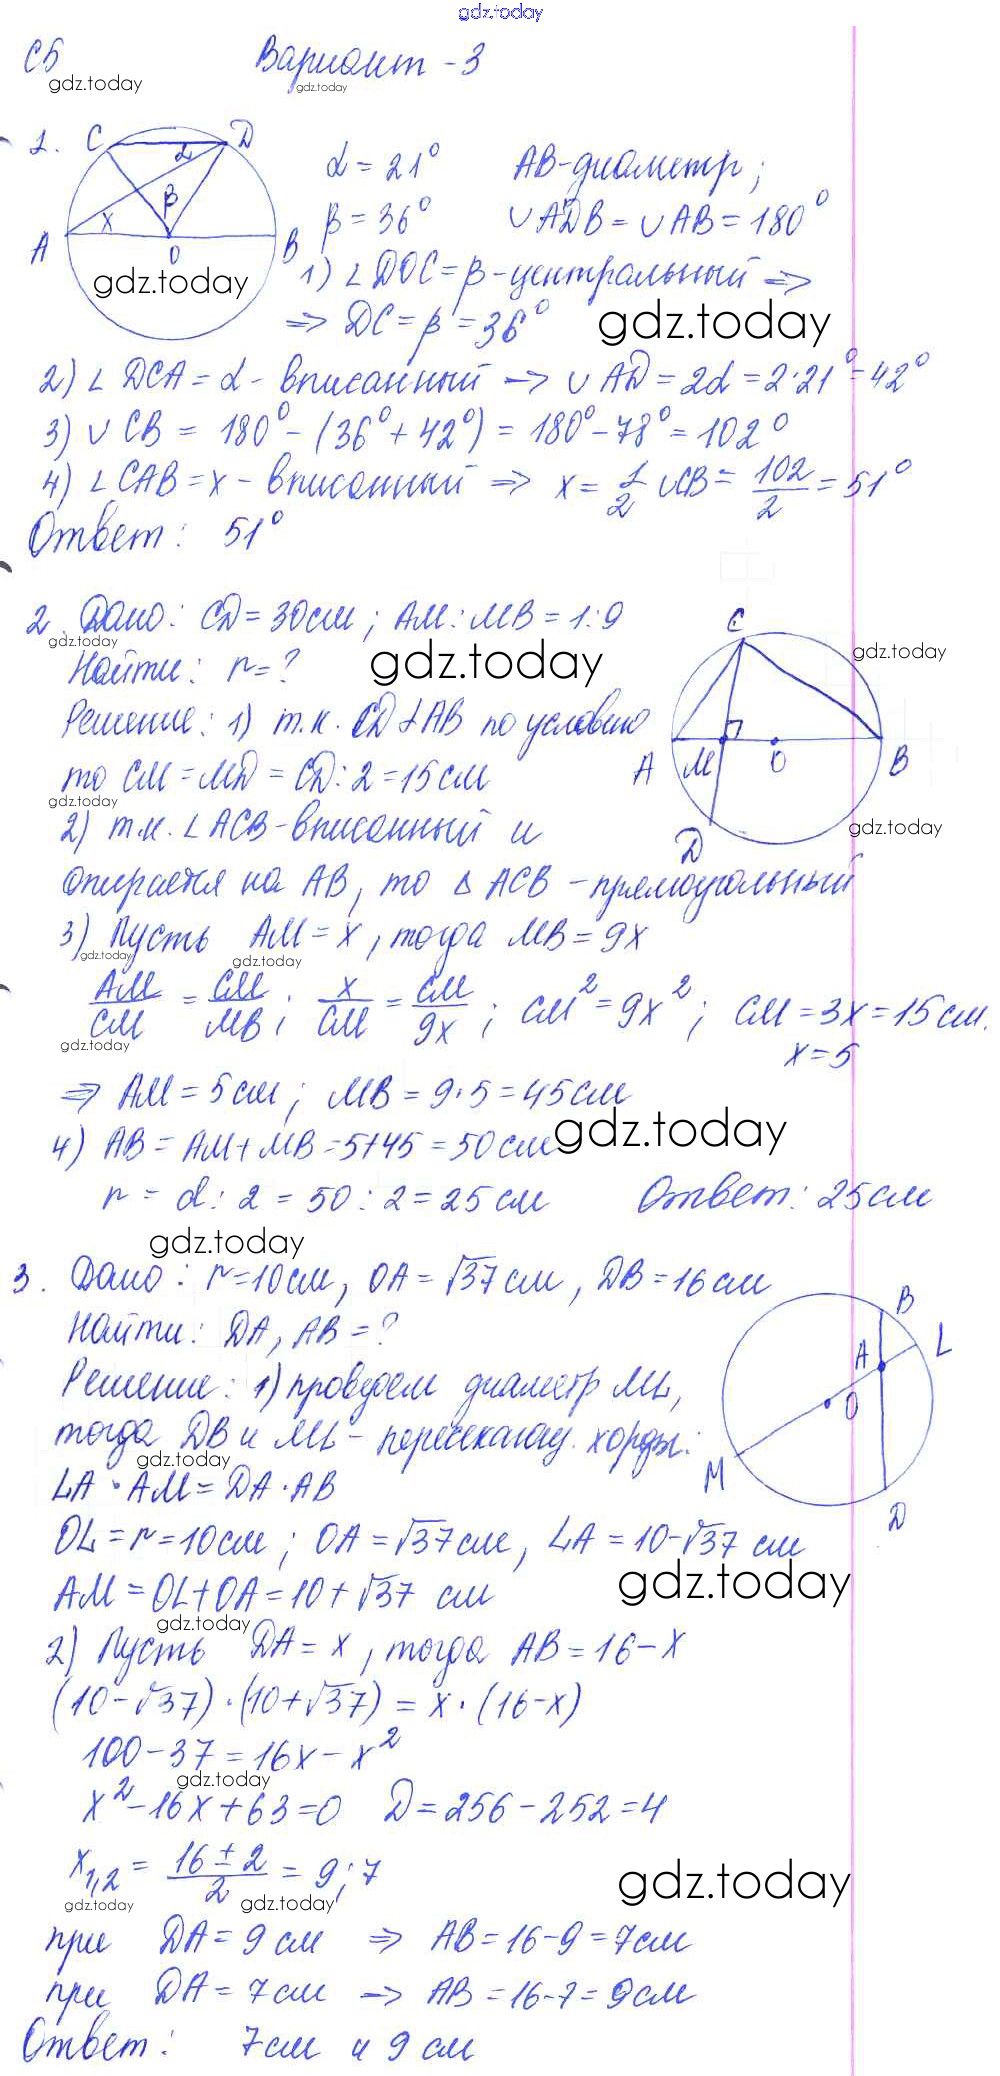 gdz.today
С5 Вариант - 3
gdz.today
gdz.today
1. C D α β x A O B
α = 21° AB - диаметр;
β = 36° ∪ADB = ∪AB = 180°
gdz.today
1) ∠DOC = β - центральный ⇒
⇒ DC = β = 36°
gdz.today
2) ∠DCA = α - вписанный → ∪AD = 2α = 2·21° = 42°
3) ∪CB = 180° - (36° + 42°) = 180° - 78° = 102°
4) ∠CAB = x - вписанный ⇒ x = 1/2 ∪CB = 102/2 = 51°
Ответ: 51°
2. Дано: CD = 30см; AM:MB = 1:9
gdz.today
Найти: r = ?
gdz.today
gdz.today
C A M O B D
Решение: 1) т.к. CD ⊥ AB по условию
то CM = MD = CD:2 = 15см
gdz.today
2) т.к. ∠ACB - вписанный и
gdz.today
опирается на AB, то △ ACB - прямоугольный
3) Пусть AM = x, тогда MB = 9x
gdz.today
gdz.today
AM/CM = CM/MB; x/CM = CM/9x; CM² = 9x²; CM = 3x = 15см.
gdz.today
x = 5
⇒ AM = 5см; MB = 9·5 = 45см
4) AB = AM + MB = 5+45 = 50см
gdz.today
r = d:2 = 50:2 = 25см Ответ: 25см
gdz.today
3. Дано: r = 10см, OA = √37 см, DB = 16см
Найти: DA, AB = ?
B L A O M D
Решение: 1) проведем диаметр ML,
тогда DB и ML - пересекающ. хорды:
gdz.today
LA · AM = DA · AB
OL = r = 10см; OA = √37 см, LA = 10 - √37 см
gdz.today
AM = OL + OA = 10 + √37 см
gdz.today
2) Пусть DA = x, тогда AB = 16 - x
(10 - √37)·(10 + √37) = x·(16 - x)
100 - 37 = 16x - x²
gdz.today
x² - 16x + 63 = 0 D = 256 - 252 = 4
x1,2 = 16 ± 2/2 = 9; 7
gdz.today
gdz.today
gdz.today
при DA = 9 см ⇒ AB = 16 - 9 = 7см
при DA = 7см → AB = 16 - 7 = 9см
Ответ: 7см и 9 см